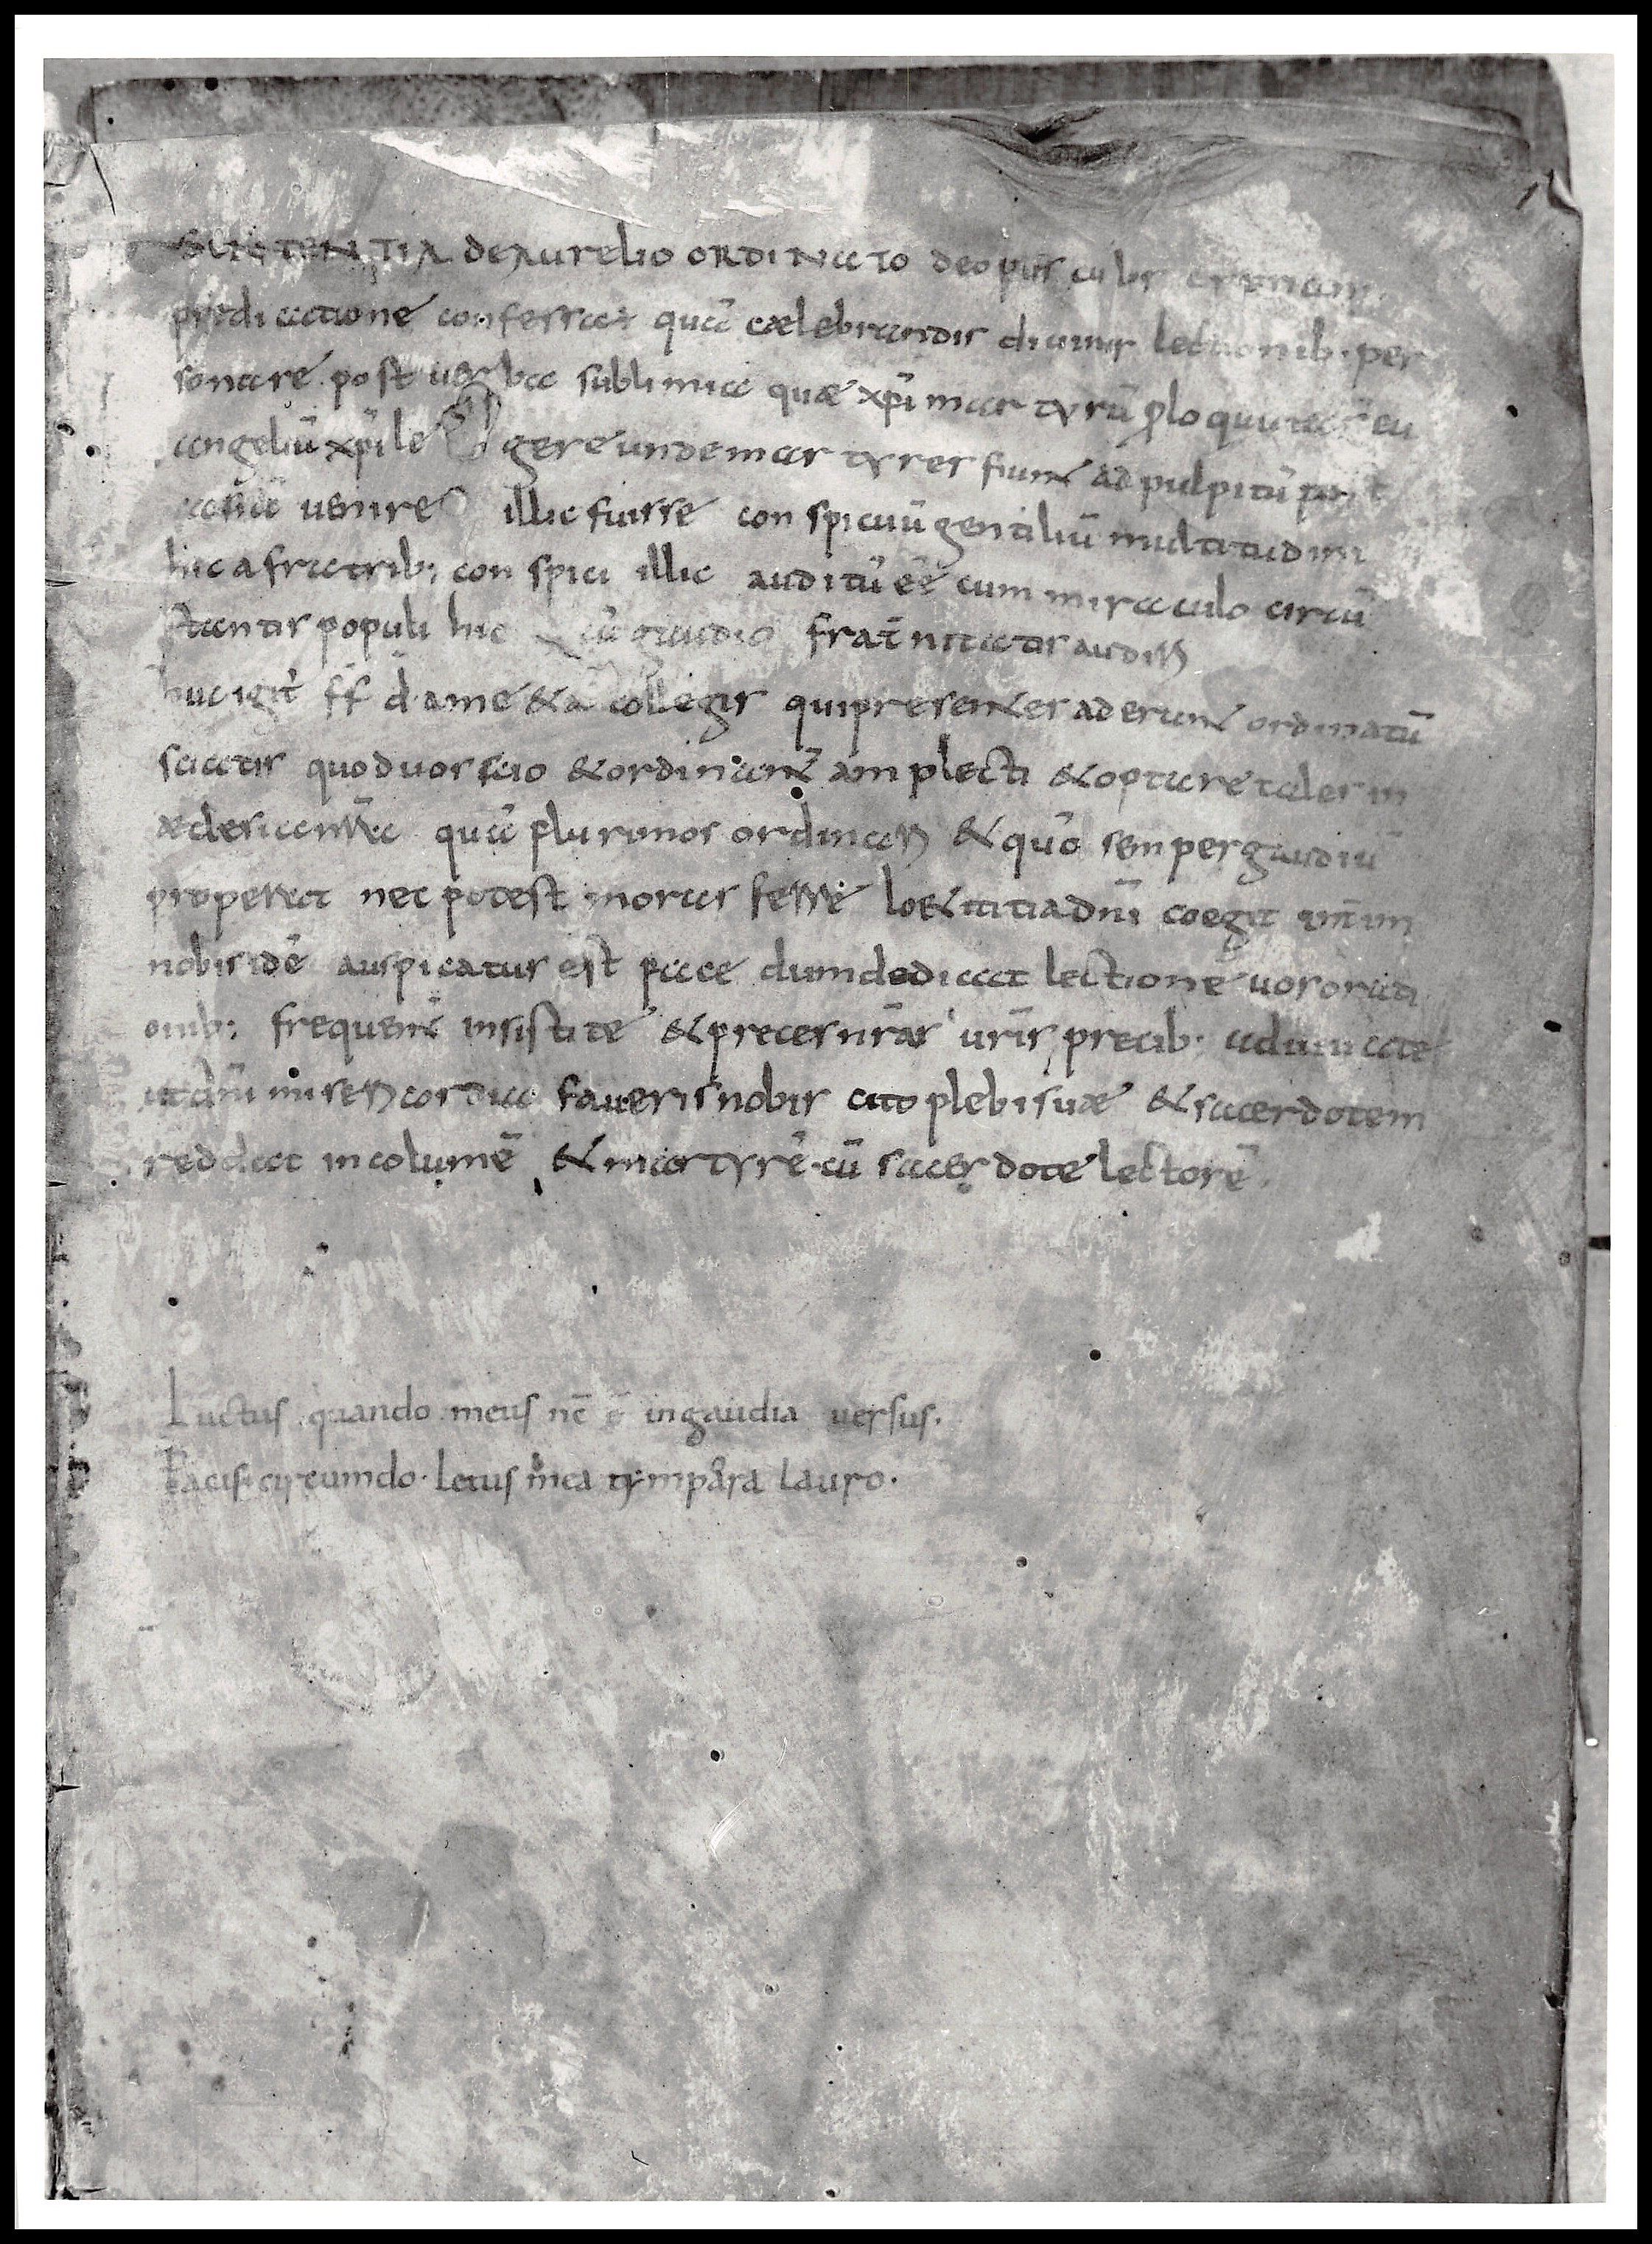 SENTENTIA DE AURELIO ORDINATO de opusculis
predicatione confessa& quā cælebrandis diuinis lectionib· per
sonare post uerba sublimia quæ xp̄i martyrū ꝓloquuta s̄ eu
angeliū xp̄i legere unde martyres fiunt ad pulpitū post
uenire illic fuisse conspicuū gentiliū multitudini
hic a fratrib; conspici illic auditū eē cum miraculo circū
stantis populi hic cū gaudio frat̄nitatis audiri
huc igit̄ ff d̄ a me & a collegis qui presentes aderant ordinatū
sciatis quod uos scio & ordinant̄ amplecti & optare tales in
æclesia nr̄a quā plurimos ordinari & quō semper gaudiū
properat nec potest moras ferre loetitia dn̄i coegit int̄im
nobis idē auspicatus est pace dum dedicat lectionē uos orati
onib; frequent̄ insistite & preces nr̄as ur̄is precib· adiuuate
ut dn̄i misericordia faueris nobis cito plebi suæ & sacerdotem
reddat incolumē & martyrē cū sacerdote lectorē
Luctus quando meus nc̄ ē in gaudia uersus·
Pacis· circumdo· letus mea tympora lauro·